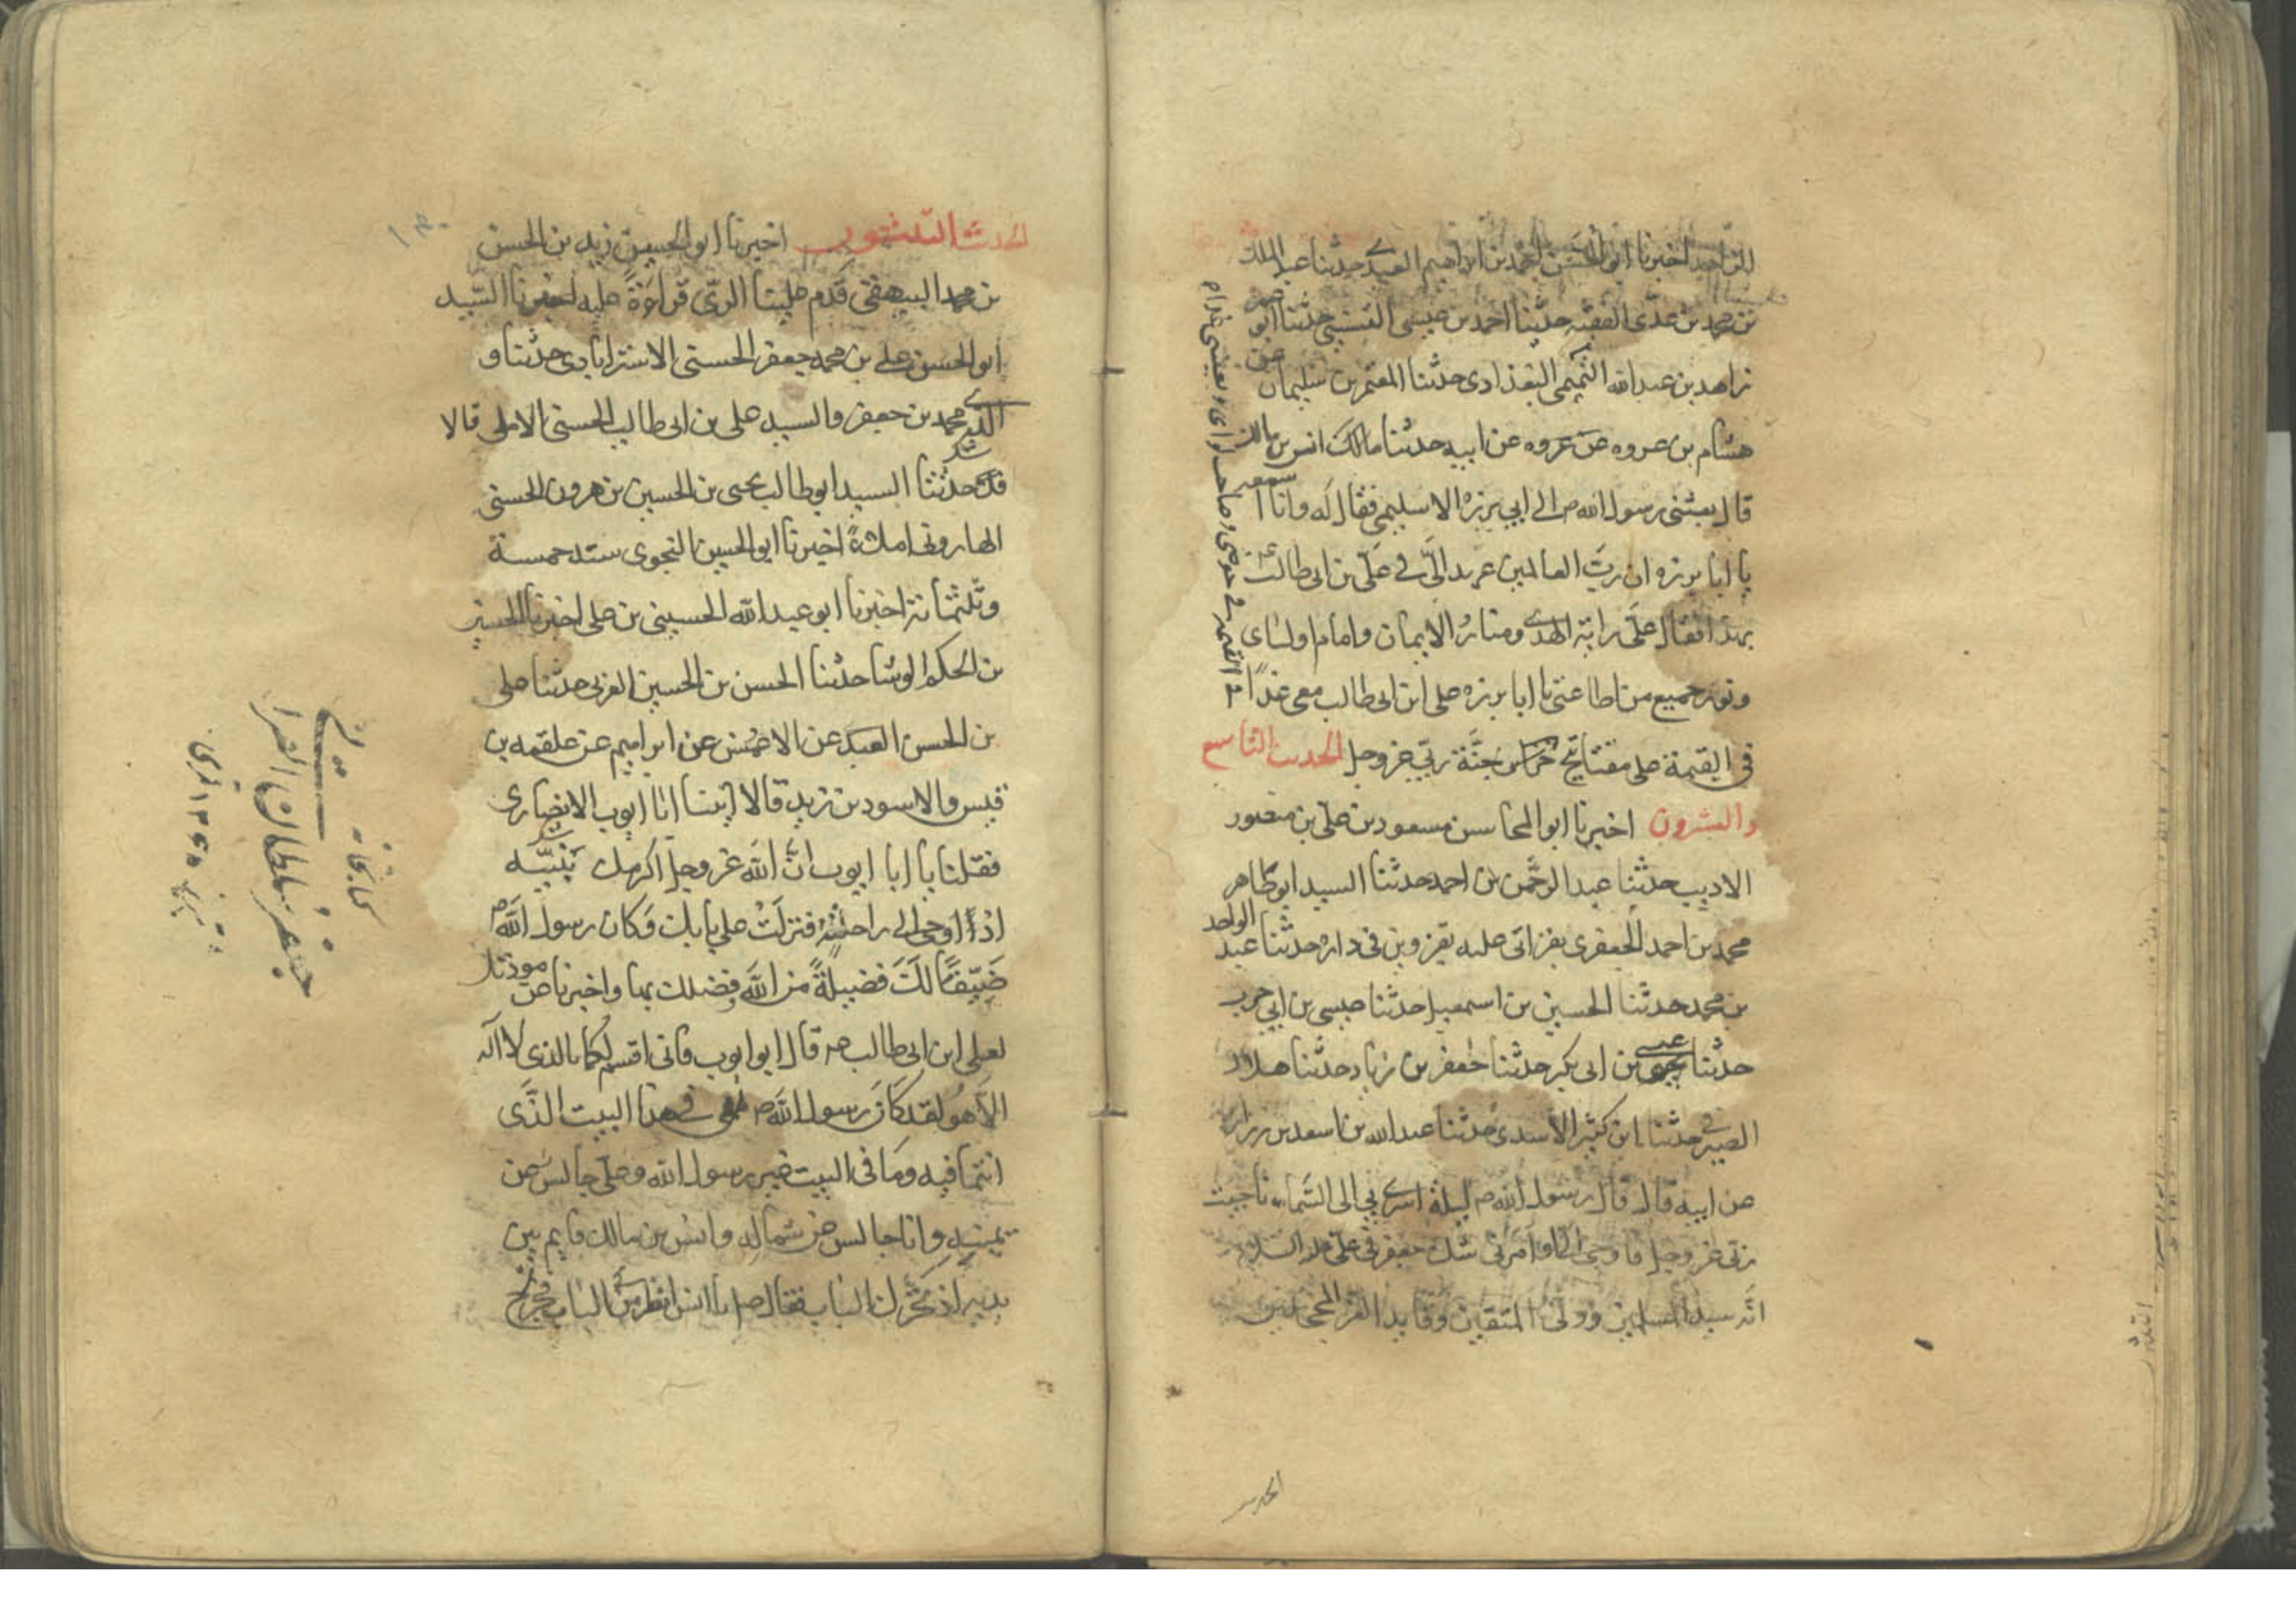 اخبرنا ابو الحسن احمد بن ابراهيم العبدي حدثنا عبد الملك
بن محمد بن عدى الفقيه حدثنا احمد بن عيسى التنيسي حدثنا ابو عمر
زاهد بن عبد الله التميمى البغدادى حدثنا المعتمر بن سليمان عن
هشام بن عروه عن عروه عن ابيه حدثنا مالك انس بن مالك
قال بعثنى رسول الله ص الى ابي برزه الاسلمي فقال له وانا اسمعه
يا ابا برزه ان رب العالمين عهد الىّ في علىّ بن ابى طالب
بهذا فقال علىّ راية الهدى ومنار الايمان وامام اوليائى
ونور جميع من اطاعنى يا ابا برزه على ابن ابى طالب معى غداً
فى القيمة على مفتايح خزائن جنّة ربّى عز وجل الحديث التاسع
والعشرون اخبرنا ابو المحاسن مسعود بن على بن منصور
الاديب حدثنا عبد الرحمن بن احمد حدثنا السيد ابو طاهر
محمد بن احمد الجعفرى بقزاتى عليه بقزوين فى داره حدثنا عبد الواحد
بن محمد حدثنا الحسين بن اسمعيل حدثنا عيسى بن ابي حرب
حدثنا يحيى بن ابى بكر حدثنا جعفر بن زياد حدثنا هلال
الصيرفى حدثنا ابن كثير الاسدى حدثنا عبد الله بن اسعد بن زراره
عن ابيه قال قال رسول الله ص ليلة اسرى بي الى السّماء
ربّى عز وجل فاوحى الىّ وامرنى فى علىّ
انّه سيد المسلمين وولىّ المتقين وقايد الغرّ المحجلين
القيمة في حوضى وصاحب لواى
الحديث
الحديث الثلثون اخبرنا ابو الحسين زيد بن الحسن
بن محمد البيهقى قدم علينا الرىّ قراءةً عليه اخبرنا السّيد
ابو الحسن على بن محمد جعفر الحسنى الاسترابادى حدثنا و
الدى محمد بن جعفر والسيد على بن ابى طالب الحسنى الاملى قالا
حدثنا السيد ابو طالب يحيى بن الحسين بن هرون الحسنى
الهارونى املاءً اخبرنا ابو الحسين النحوى سنة خمسة
وثلثمائة اخبرنا ابو عبد الله الحسينى بن على اخبرنا الحسين
بن الحكم الوشا حدثنا الحسن بن الحسين العرنى حدثنا على
بن الحسن العبدى عن الاعمش عن ابراهيم عن علقمه بن
قيس والاسود بن زيد قالا اتينا ابا ايوب الانصارى
فقلنا يا ابا ايوب انّ الله عز وجل اكرمك بنبيّه
اذ اوحى الى راحلته فنزلت على بابك وكان رسول الله ص
ضيّفاً لك فضيلةً من الله فضلك بها واخبرنا عن موذتك
لعلى ابن ابى طالب ص قال ابو ايوب فانى اقسم لكما بالذى لا اله
الا هو لقد كان رسول الله ص معى فى هذا البيت الذى
انتما فيه وما فى البيت غير رسول الله وعلى جالس عن
يمينه وانا جالس عن شماله وانس بن مالك قايم بين
يديه اذ تحرّك الباب فقال ص يا انس انظر من الباب فخرج
كتابخانه
جعفر سلطان القرا
تبريز